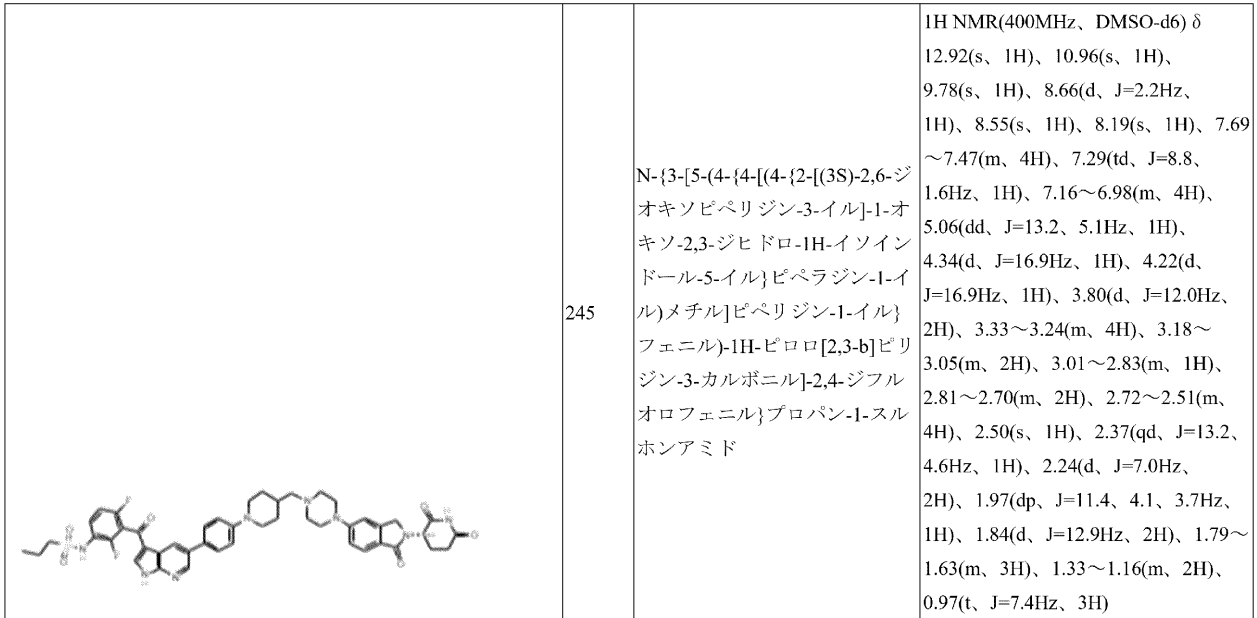 245
N-{3-[5-(4-{4-[(4-{2-[(3S)-2,6-ジ
オキソピペリジン-3-イル]-1-オ
キソ-2,3-ジヒドロ-1H-イソイン
ドール-5-イル}ピペラジン-1-イ
ル)メチル]ピペリジン-1-イル}
フェニル)-1H-ピロロ[2,3-b]ピリ
ジン-3-カルボニル]-2,4-ジフル
オロフェニル}プロパン-1-スル
ホンアミド
1H NMR(400MHz、DMSO-d6) δ
12.92(s、1H)、10.96(s、1H)、
9.78(s、1H)、8.66(d、J=2.2Hz、
1H)、8.55(s、1H)、8.19(s、1H)、7.69
～7.47(m、4H)、7.29(td、J=8.8、
1.6Hz、1H)、7.16～6.98(m、4H)、
5.06(dd、J=13.2、5.1Hz、1H)、
4.34(d、J=16.9Hz、1H)、4.22(d、
J=16.9Hz、1H)、3.80(d、J=12.0Hz、
2H)、3.33～3.24(m、4H)、3.18～
3.05(m、2H)、3.01～2.83(m、1H)、
2.81～2.70(m、2H)、2.72～2.51(m、
4H)、2.50(s、1H)、2.37(qd、J=13.2、
4.6Hz、1H)、2.24(d、J=7.0Hz、
2H)、1.97(dp、J=11.4、4.1、3.7Hz、
1H)、1.84(d、J=12.9Hz、2H)、1.79～
1.63(m、3H)、1.33～1.16(m、2H)、
0.97(t、J=7.4Hz、3H)